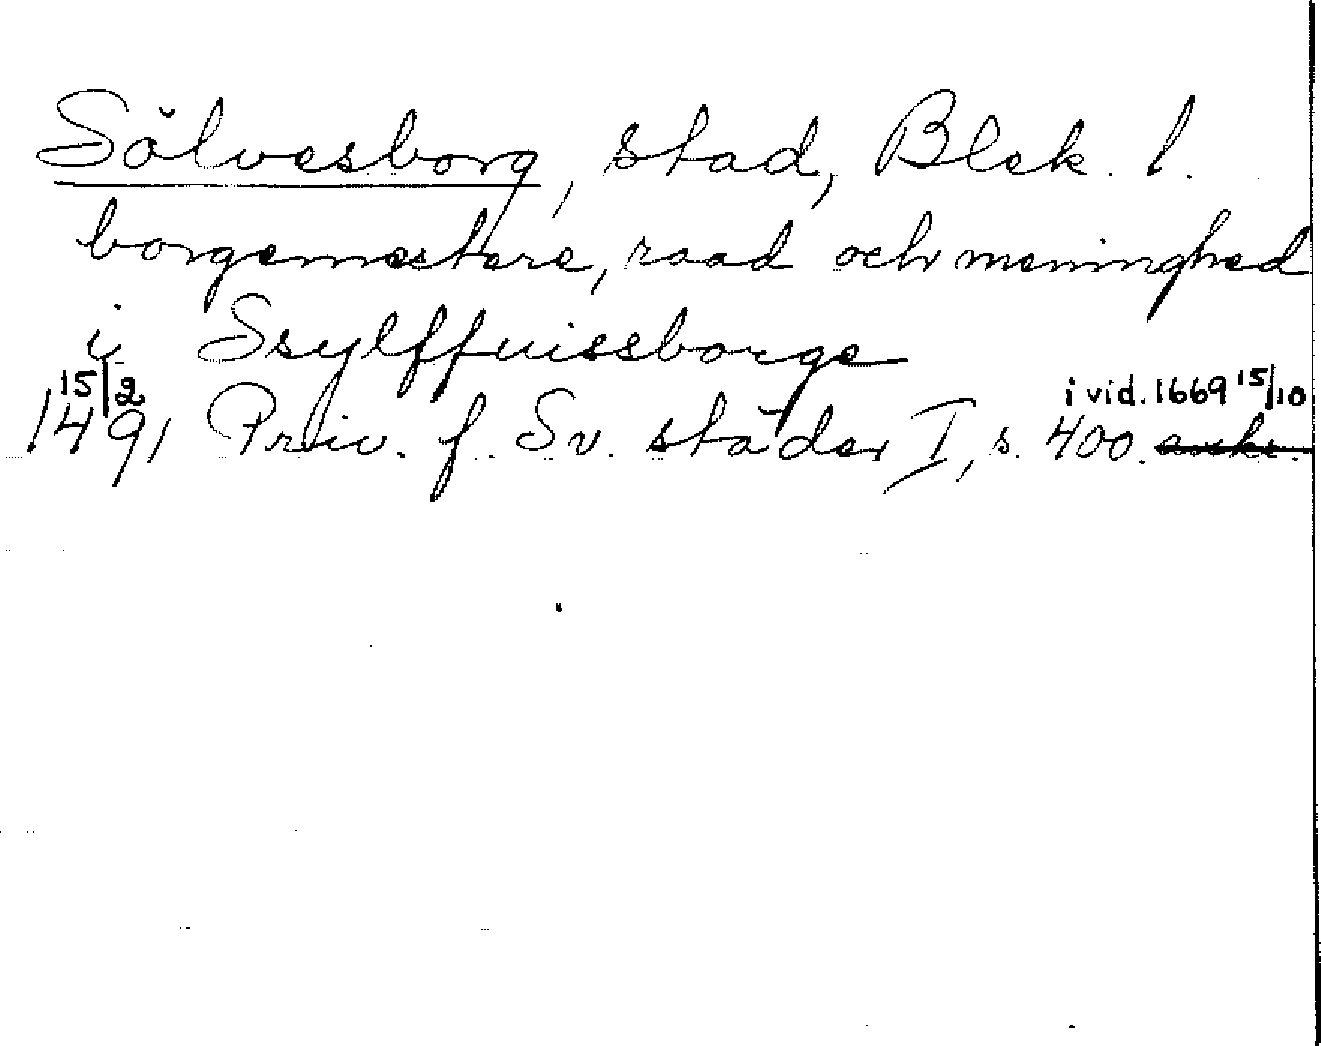 Sölvesborg, stad, Blek. l.
borgemestere, raad och meninghed
i Ssylffuissborge
15/2 i vid. 1669 15/10
1491 Priv. f. Sv. städer I, s. 400.